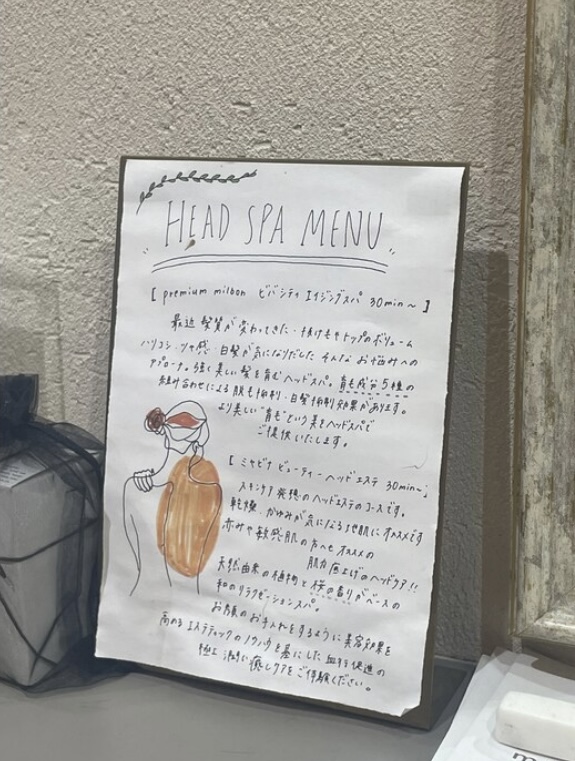 HEAD SPA MENU
[ premium milbon ビバシティ エイジングスパ 30min~ ]
最近 髪質が変わってきた・抜け毛やトップのボリューム
ハリコシ・ツヤ感・白髪が気になりだした そんな お悩みへの
アプローチ。強く美しい髪を育むヘッドスパ。育毛成分5種の
組み合わせによる 脱毛抑制・白髪抑制効果があります。
より美しい"育毛"という美をヘッドスパで
ご提供いたします。
[ ミヤビナ ビューティー ヘッドエステ 30min~
スキンケア発想のヘッドエステのコースです。
乾燥、かゆみが気になる地肌にオススメです
赤みや敏感肌の方へもオススメの
肌力底上げのヘッドケア!!
天然由来の植物と桜の香りがベースの
和のリラクゼーションスパ。
お顔のお手入れをするように美容効果を
高める エステティックのノウハウを基にした 血行促進の
極上 癒しケアをご体験ください。